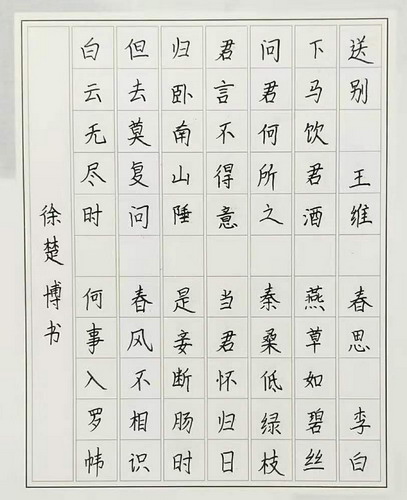 送别 王维
下马饮君酒
问君何所之
君言不得意
归卧南山陲
但去莫复问
白云无尽时
春思 李白
燕草如碧丝
秦桑低绿枝
当君怀归日
是妾断肠时
春风不相识
何事入罗帏
徐楚博书